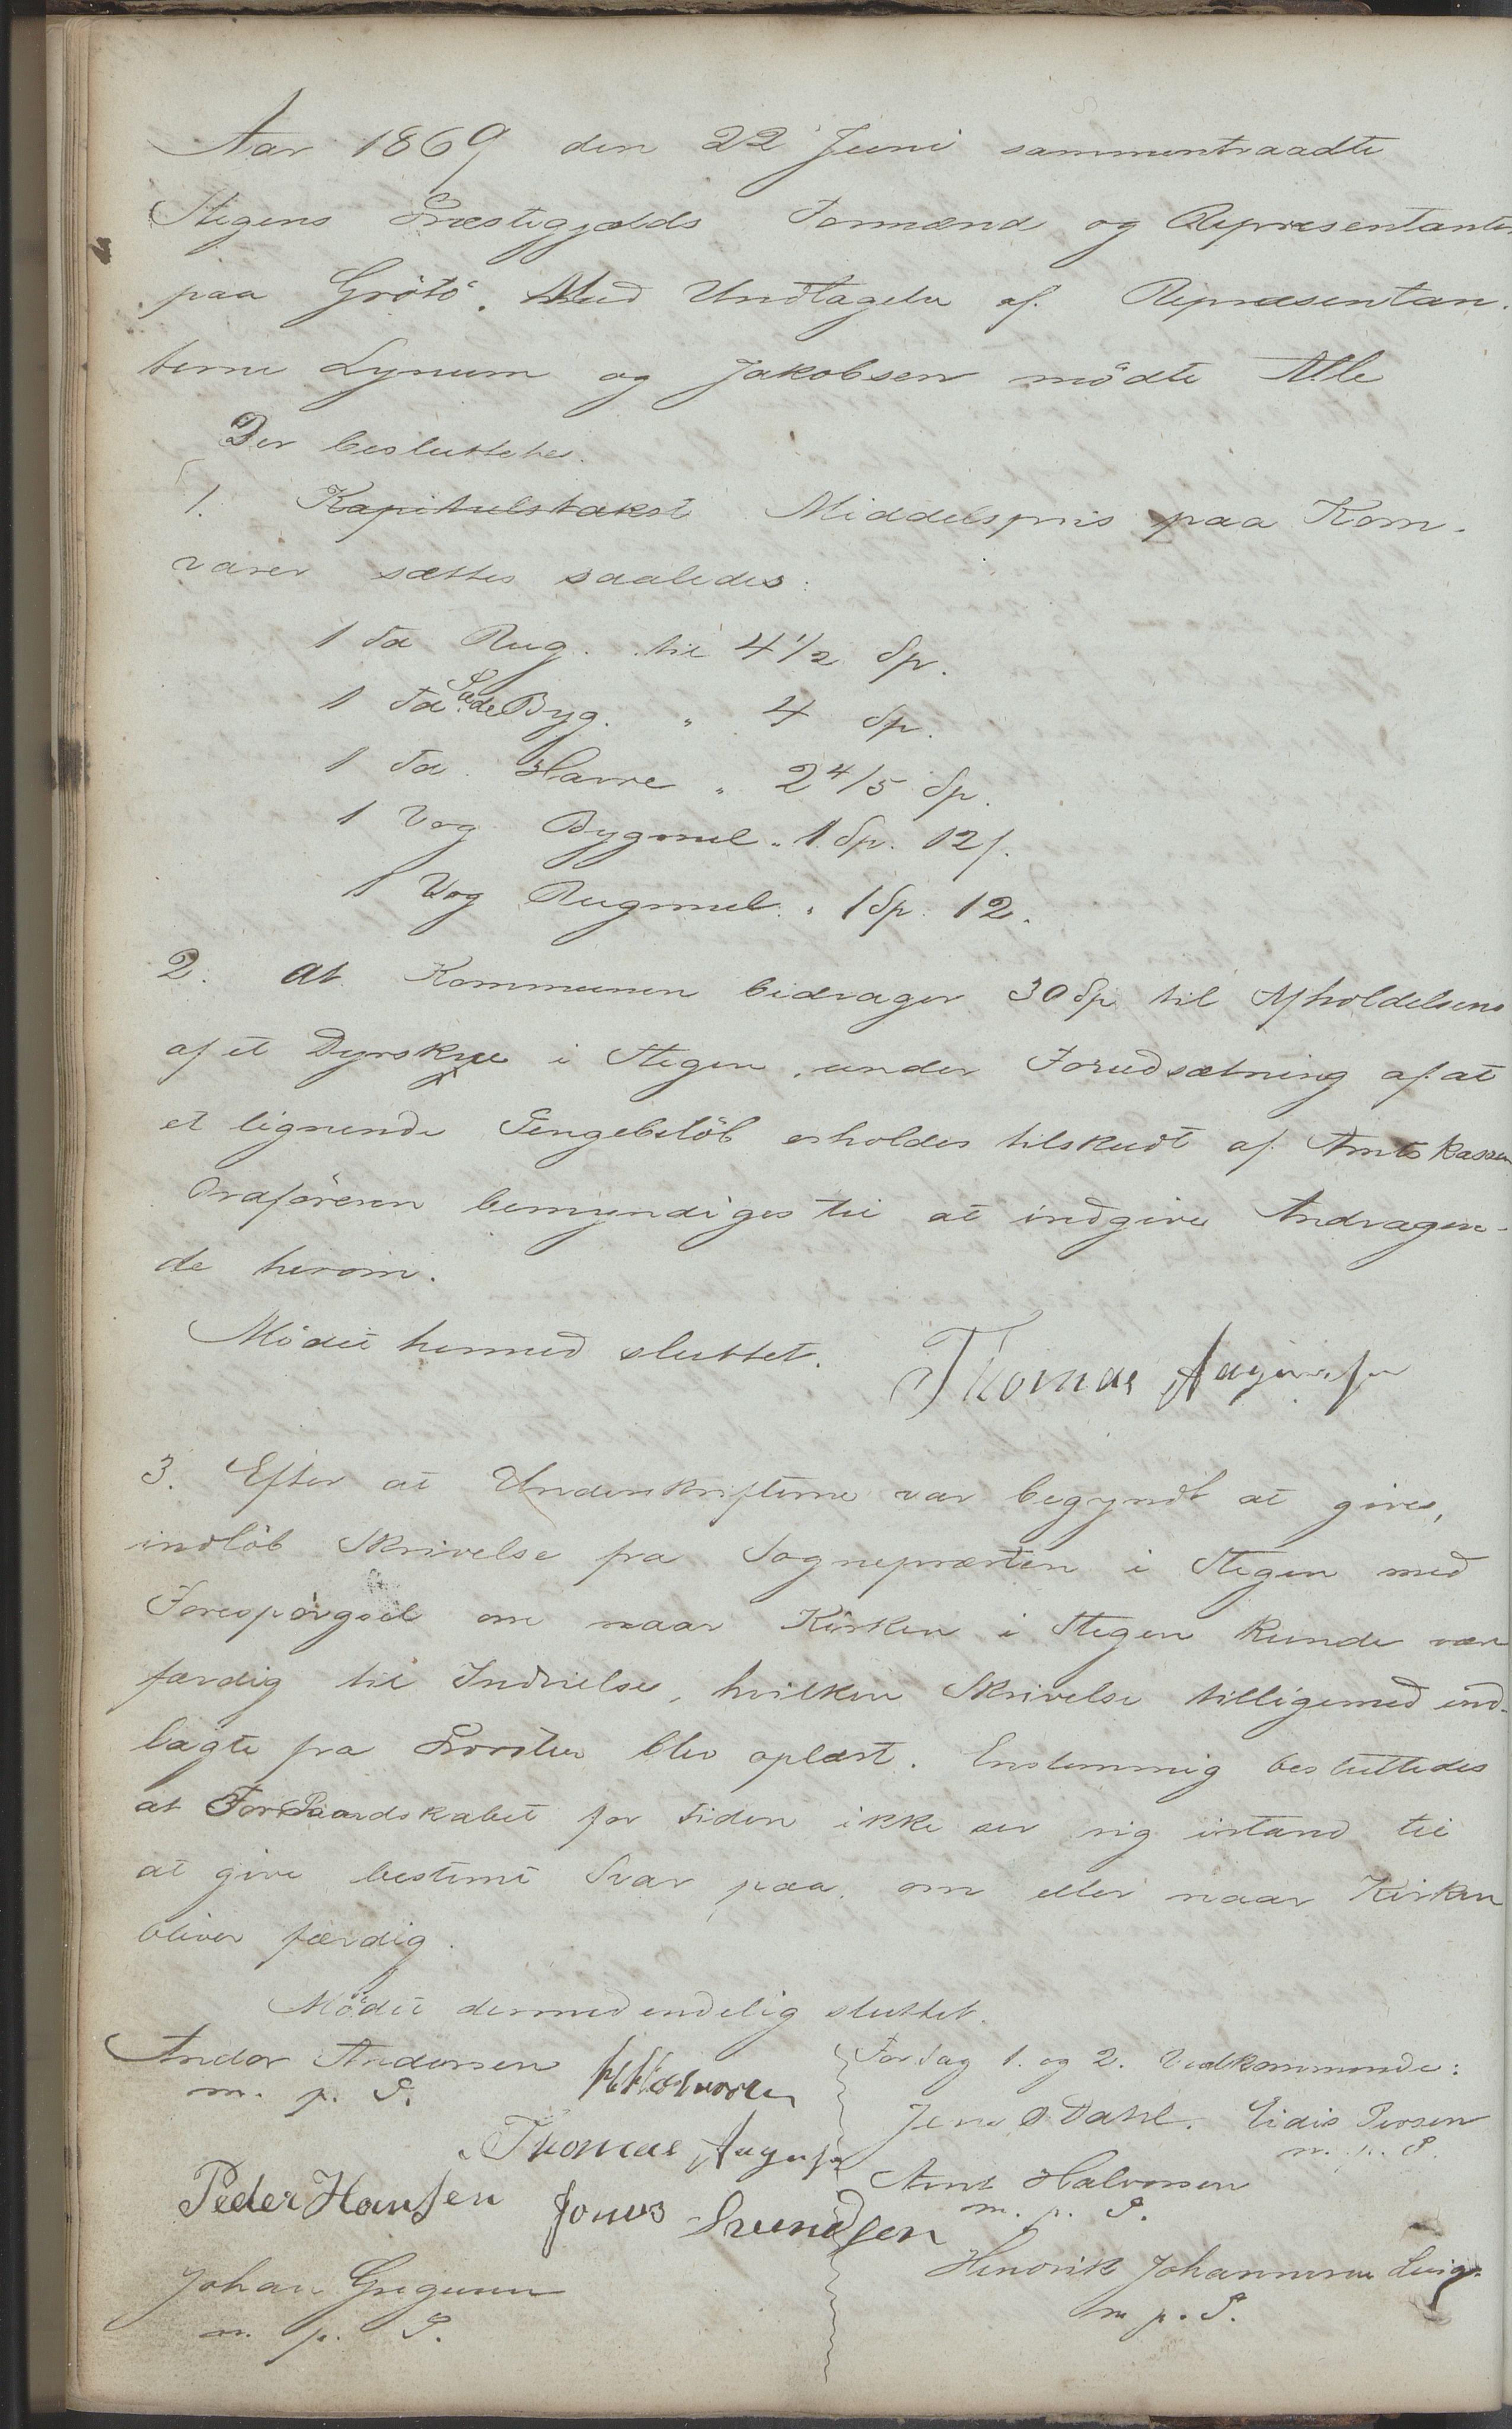 Aar 1869 den 22 Juni sammentraadte
Stegens Præstegjælds Formænd og Repræsentanter
paa Grötö. Med Undtagelse af Repræsentan-
terne Lynum og Jakobsen mödte Alle
Der besluttedes.
1. Kapitelstakst Middelspris paa Korn-
varer sættes saaledes:
1 Td Rug. til 4 1/2 Sp.
1 Td SædeByg. " 4 Sp.
1 Td. Havre " 2 4/5 Sp.
1 Vog Bygmel " 1 Sp. 12 s.
1 Vog Rugmel " 1 Sp. 12.
2. At Kommunen bidrager 30 Sp til Afholdelsens
af et Dyrskue i Stegen, under Forudsætning af at
et lignende Pengebelöb erholdes tilskudt af Amtskassen
Ordföreren bemyndiges til at indgive Andragen-
de herom.
Mödet hermed sluttet. Thomas
3. Efter at Underskrifterne var begyndt at gives,
indlöb Skrivelse fra Sognepræsten i Stegen med
Forespörgsel om naar Kirken i Stegen kunde være
færdig til Indvielse, hvilken Skrivelse tilligemed ind-
lagte fra Provsten blev oplæst. Enstemmig besluttedes
at Formandskabet for tiden ikke ser sig istand til
at give bestemt Svar paa, om eller naar Kirken
bliver færdig.
Mödet dermed endelig sluttet.
Andor Andersen
m. p. P.
Thomas
Peder Hansen Jonas Svendsen
Johan Gregusen
m. p. P.
Forslag 1. og 2. Vedkommende:
Jens O Dahl. Eidis Persen
m. p. P.
Arnt Halvorsen
m. p. P.
Hendrik Johannesen
m p. P.